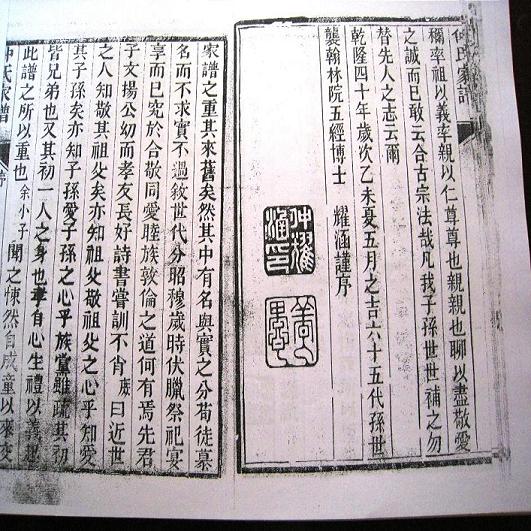 仲氏家譜
禰率祖以義率親以仁尊尊也親親也聊以盡敬愛
之誠而已敢云合古宗法哉凡我子孫世世補之勿
替先人之志云爾
乾隆四十年歲次乙未夏五月之吉六十五代孫世
襲翰林院五經博士 耀涵謹序
仲耀涵印
家譜之重其來舊矣然其中有名與實之分苟徒慕
名而不求實不過敘世代分昭穆歲時伏臘祭祀宴
享而已究於合敬同愛睦族敦倫之道何有焉先君
子文揚公幼而孝友長好詩書嘗訓不肖 曰近世
之人知敬其祖父矣亦知祖父敬祖父之心乎知愛
其子孫矣亦知子孫愛子孫之心乎族黨雖疏其初
皆兄弟也又其初一人之身也率自心生禮以義起
此譜之所以重也余小子聞之悚然自成童以來
仲氏家譜 序